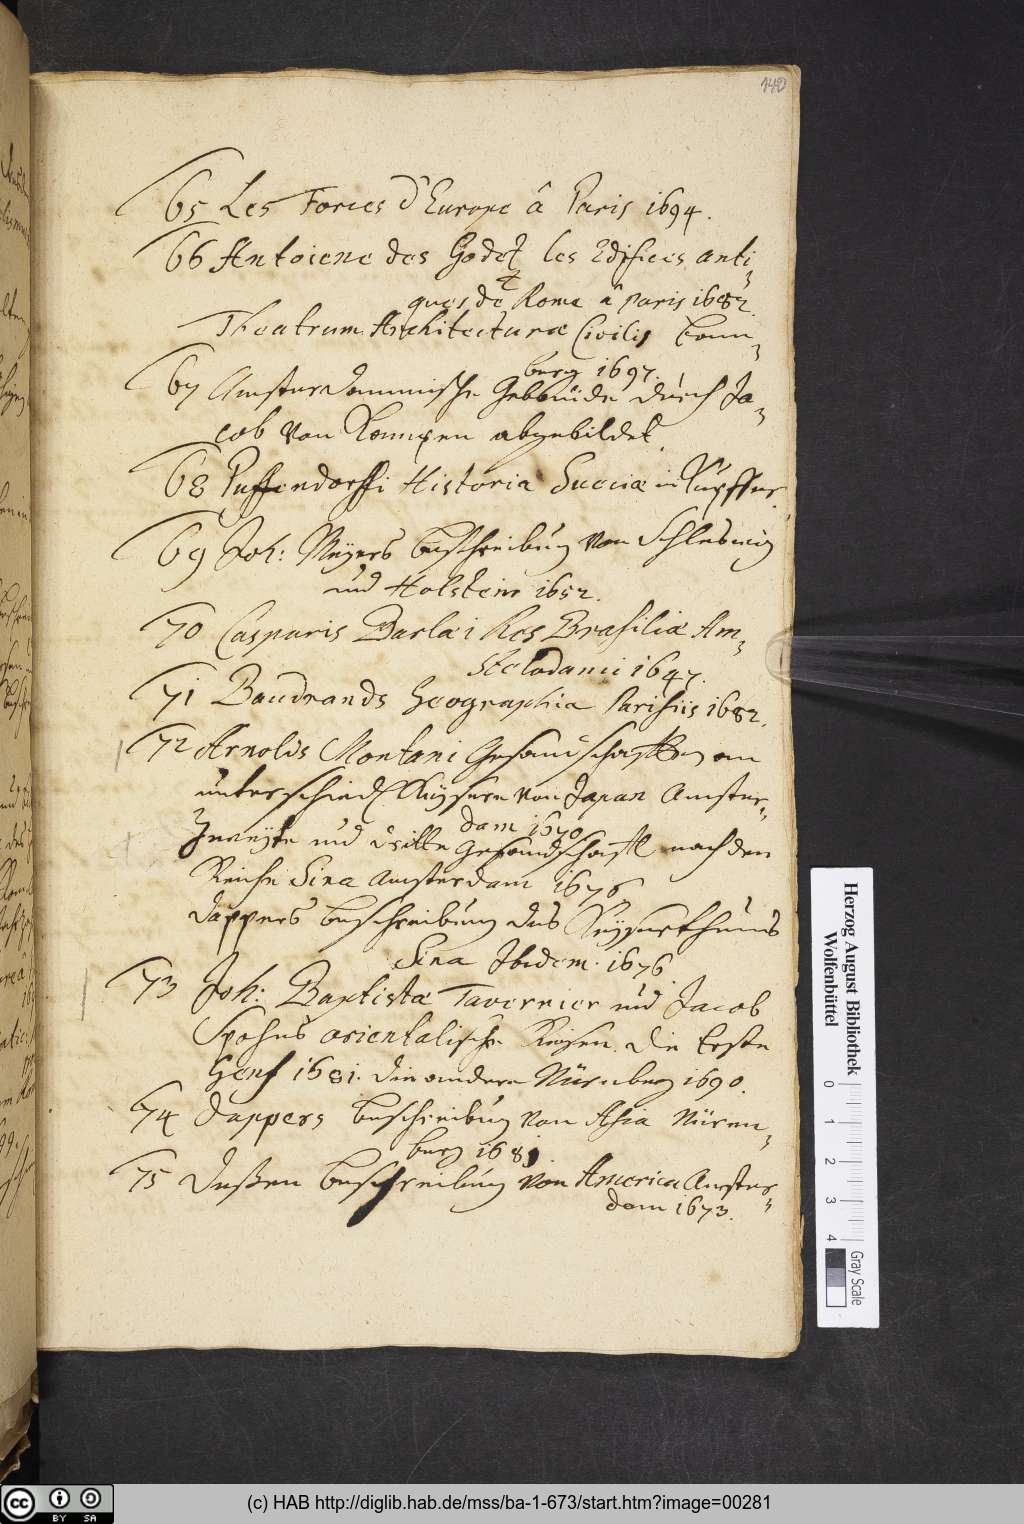 140
65 Les Forces d'Europe â Paris 1694.
66 Antoiene des Godetz les Edifices anti-
ques de Rome â paris 1682.
Theatrum Architecturæ Civilis Bam-
berg 1697.
67 Amsterdammische Gebäude durch Ja-
cob von Kempen abgebildet.
68 Puffendorffi Historia Sueciæ in Kupffer.
69 Joh: Meyers beschreibung von Schleswig
und Holstein 1652.
70 Casparis Barlæi Res Brasiliæ Am-
stelodami 1647.
71 Baudrands Geographia Parisiis 1682.
72 Arnoldis Montani Gesandschafften an
unterschiedl Kaysere von Japan Amster-
dam 1670
Zweyte und dritte Gesandschafft nach den
Reiche Sina Amsterdam 1676
Dappers beschreibung des Kayserthums
Sina Ibidem 1676
73 Joh: Baptistæ Tavernier und Jacob
Spohns orientalische Reisen. die Erste
Genf 1681. die andere Nürnberg 1690.
74 Dappers beschreibung von Asia Nüren-
berg 1681.
75 Deßen beschreibung von America Amster-
dam 1673.
Herzog August Bibliothek
Wolfenbüttel
0 1 2 3 4
Gray Scale
CC BY SA
(c) HAB http://diglib.hab.de/mss/ba-1-673/start.htm?image=00281